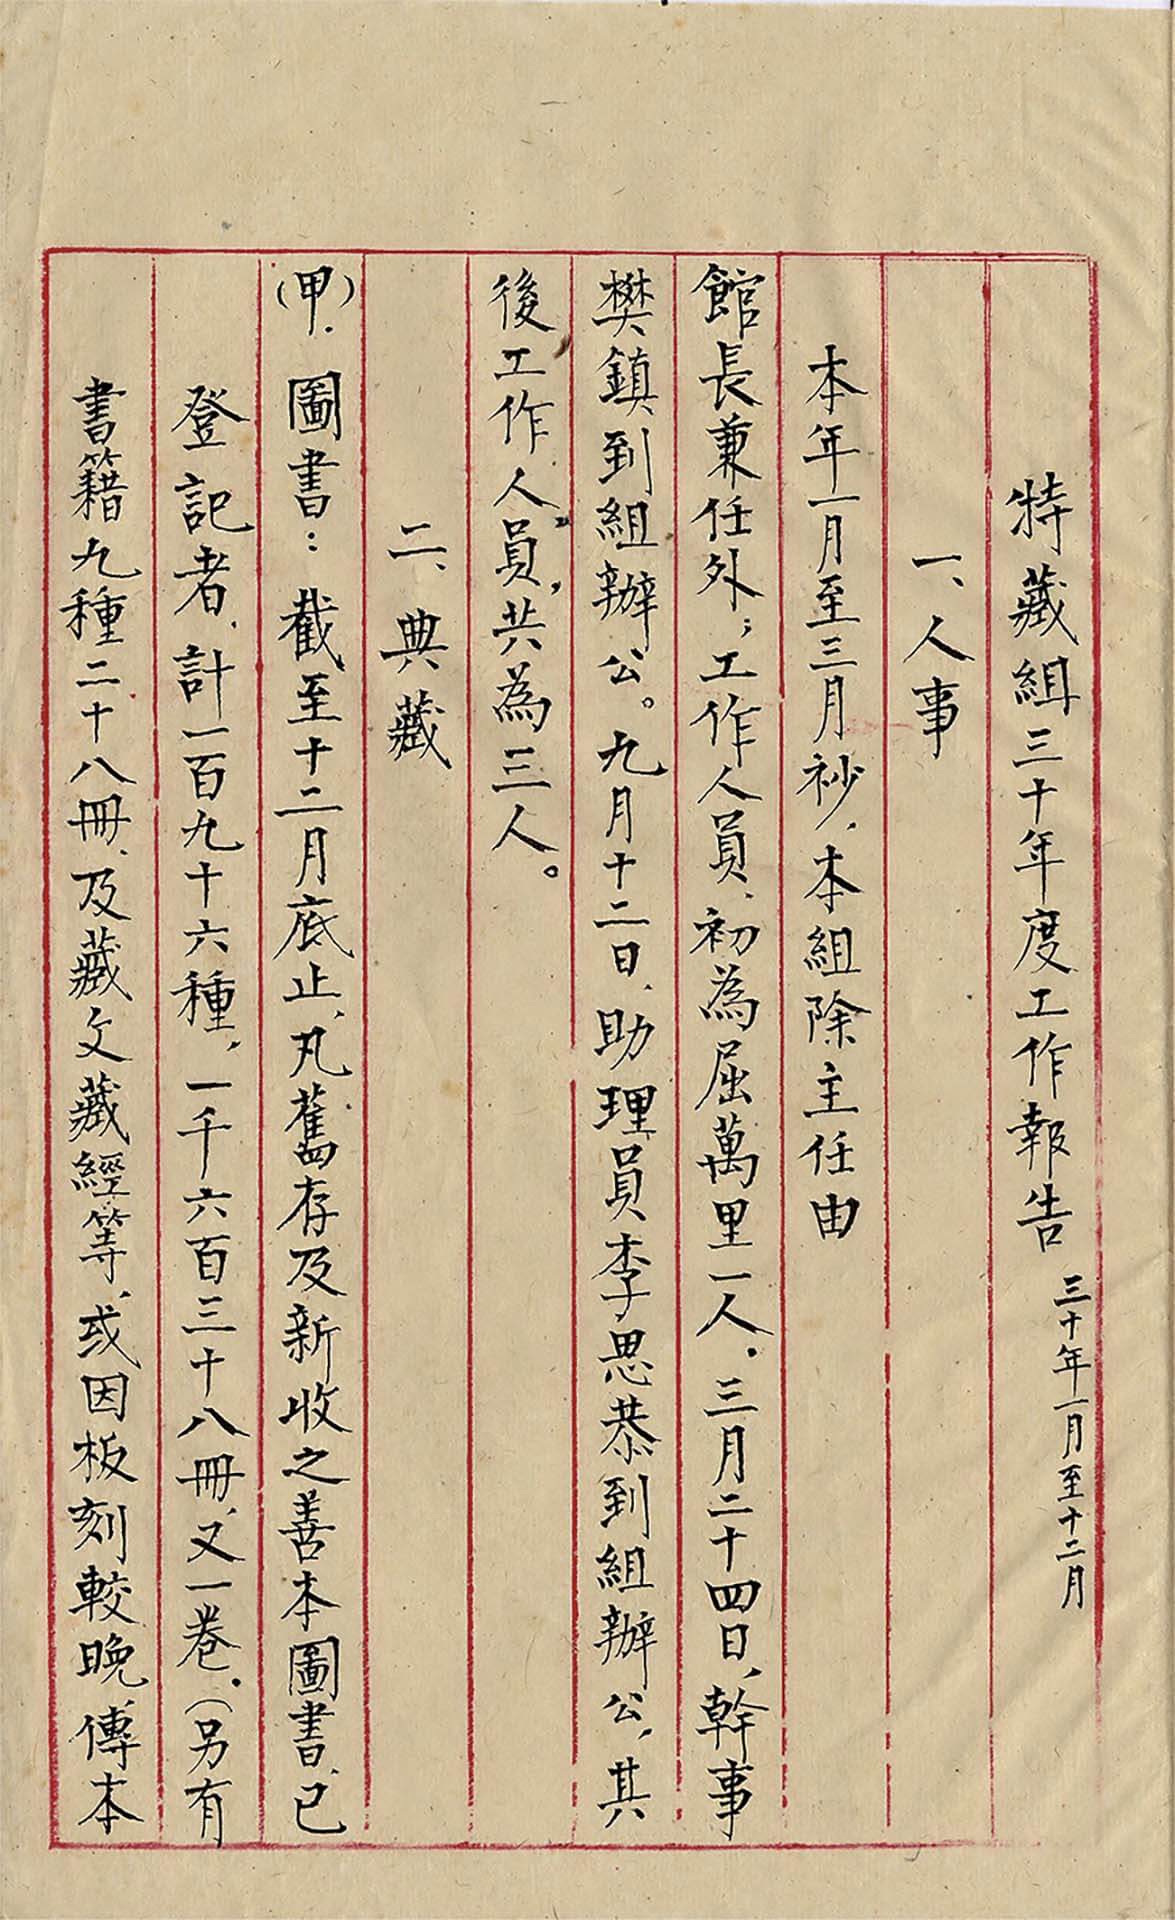 特藏組三十年度工作報告 三十年一月至十二月
一、人事
本年一月至三月杪、本組除主任由
館長兼任外；工作人員、初為屈萬里一人。三月二十四日、幹事
樊鎮到組辦公。九月十二日、助理員李思恭到組辦公，其
後工作人員，共為三人。
二、典藏
(甲)．圖書：截至十二月底止、凡舊存及新收之善本圖書、已
登記者、計一百九十六種，一千六百三十八冊、又一卷．(另有
書籍九種二十八冊、及藏文藏經等、或因板刻較晚傳本